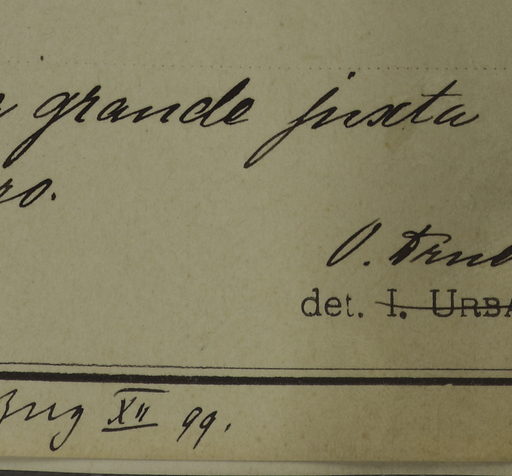 grande juxta
ro.
O. Drud
det. I. URBA
Brig XII 99.